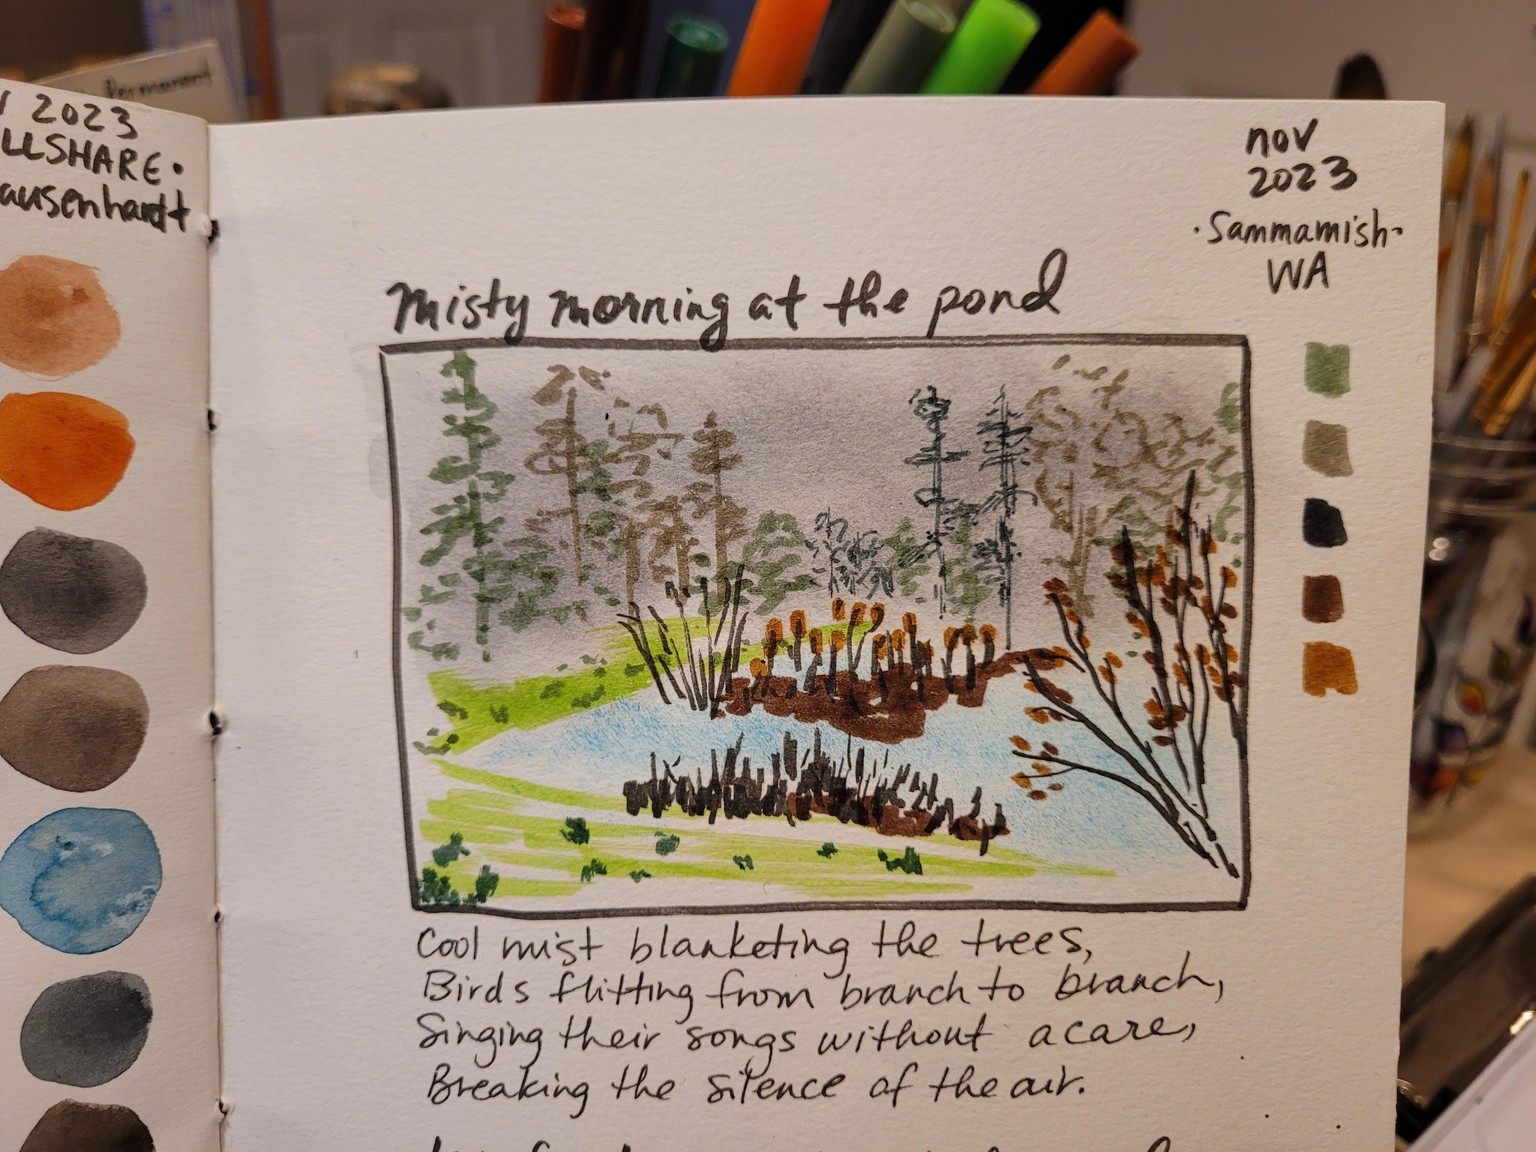 Permanent
2023
LLSHARE.
ausenhardt
nov
2023
·Sammamish·
WA
Misty morning at the pond
Cool mist blanketing the trees,
Birds flitting from branch to branch,
Singing their songs without a care,
Breaking the silence of the air.